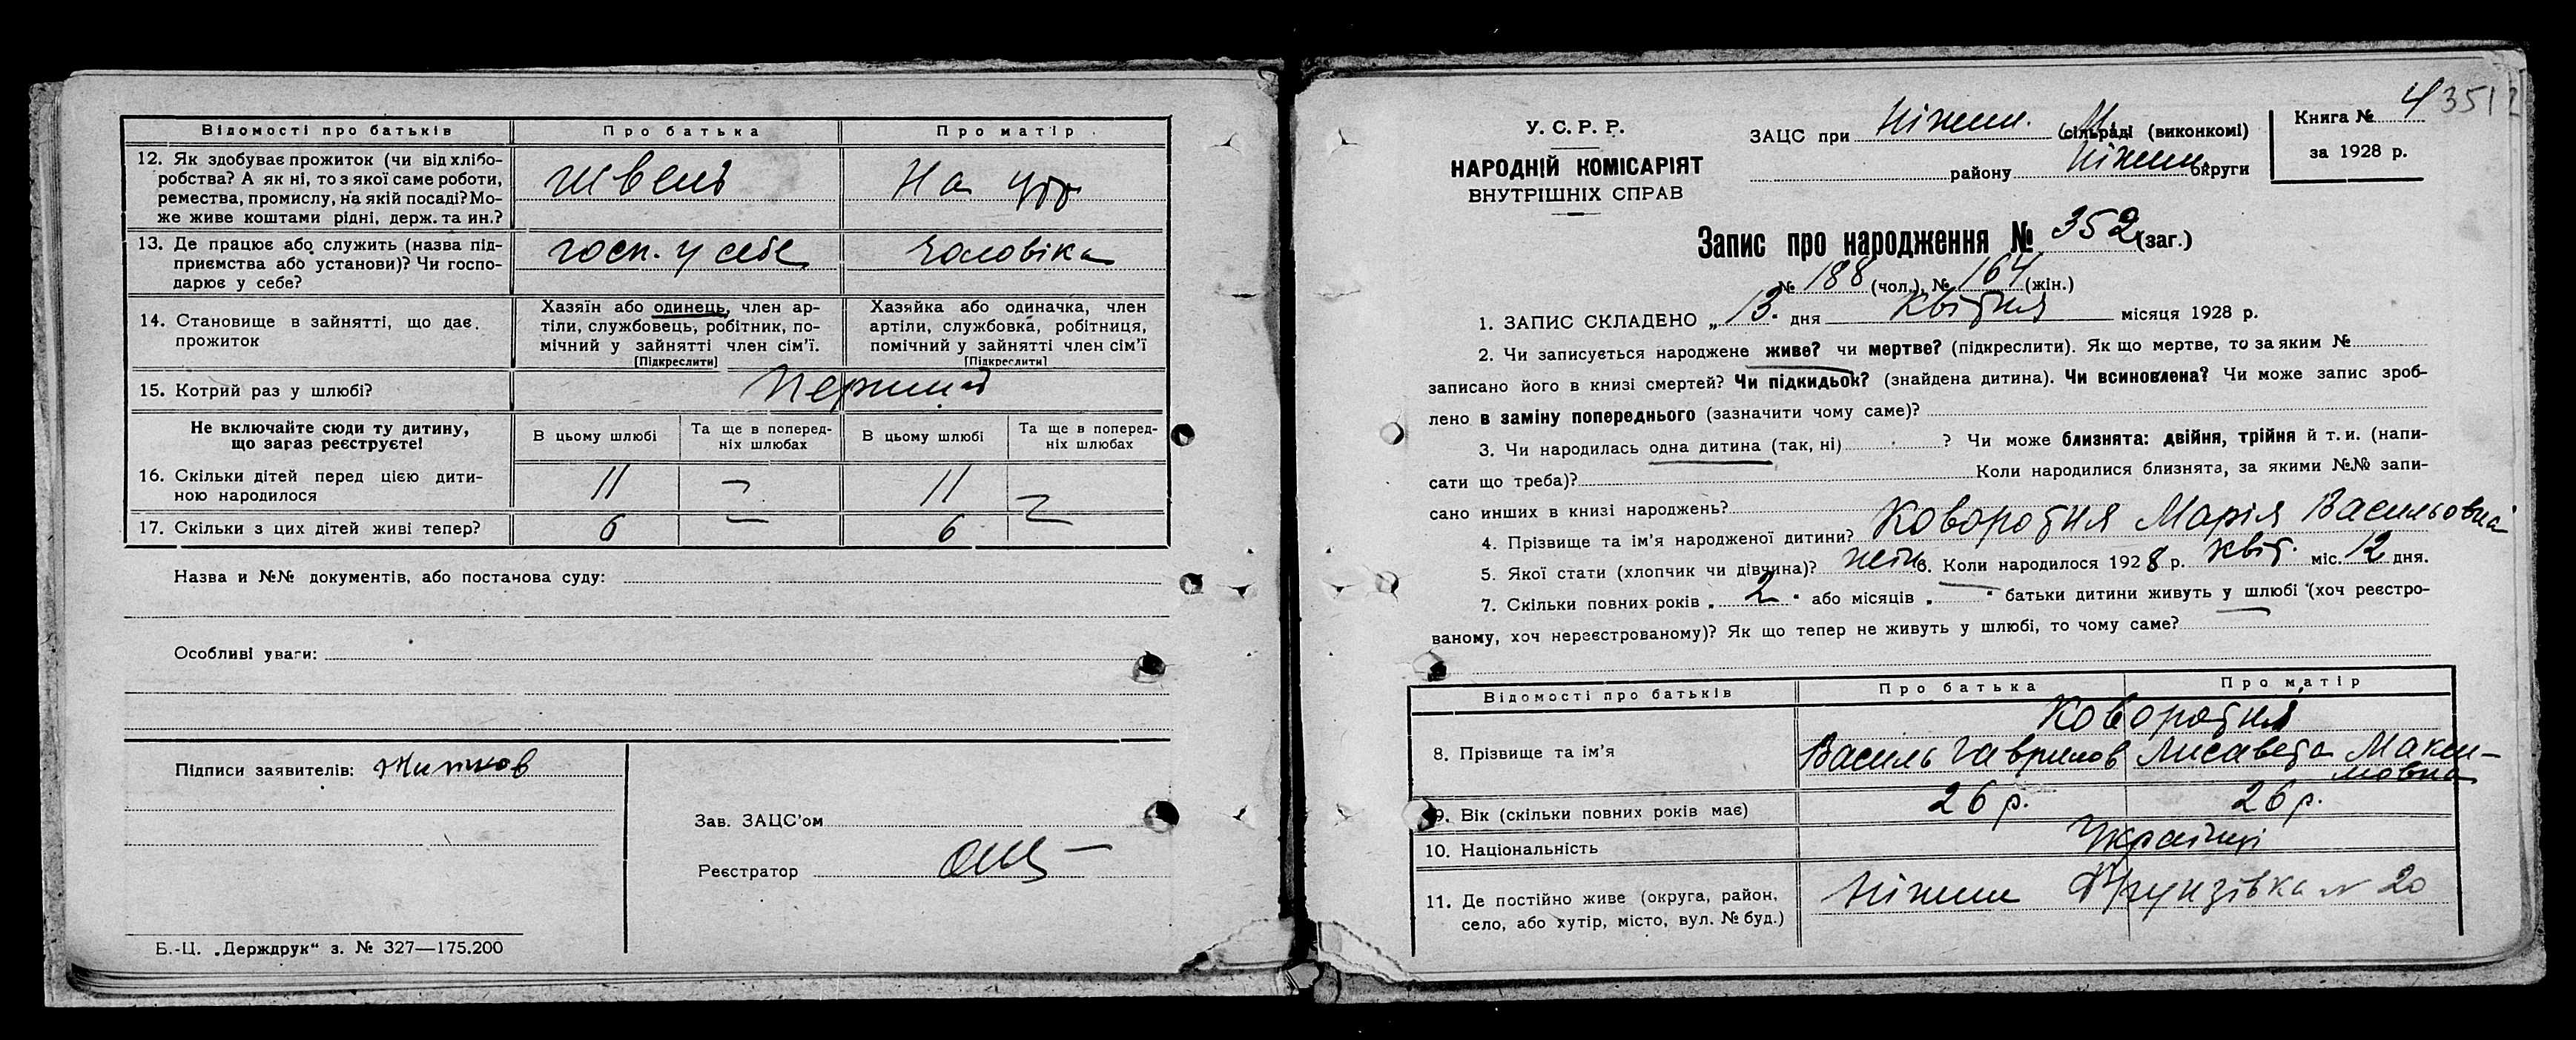 Відомості про батьків Про батька Про матір
12. Як здобуває прожиток (чи від хлібо-
робства? А як ні, то з якої саме роботи,
ремества, промислу, на якій посаді? Мо-
же живе коштами рідні, держ. та ин.?
швець На утр
13. Де працює або служить (назва під-
приємства або установи)? Чи госпо-
дарює у себе?
госп. у себе чоловіка
14. Становище в зайнятті, що дає
прожиток
Хазяїн або одинець, член ар-
тілі, службовець, робітник, по-
мічний у зайнятті член сім'ї.
[Підкреслити]
Хазяйка або одиначка, член
артілі, службовка, робітниця,
помічний у зайнятті член сім'ї
[Підкреслити]
15. Котрий раз у шлюбі? перший
Не включайте сюди ту дитину,
що зараз реєструєте!
В цьому шлюбі Та ще в поперед-
ніх шлюбах В цьому шлюбі Та ще в поперед-
ніх шлюбах
16. Скільки дітей перед цією дити-
ною народилося
11 — 11 —
17. Скільки з цих дітей живі тепер? 6 — 6 —
Назва и №№ документів, або постанова суду:
Особливі уваги:
Підписи заявителів:
Зав. ЗАЦС'ом
Реєстратор
Б.-Ц. „Держдрук“ з. № 327—175.200
4 3512
У. С. Р. Р.
НАРОДНІЙ КОМІСАРІЯТ
ВНУТРІШНІХ СПРАВ
ЗАЦС при Ніжин. М. сільраді (виконкомі)
району Ніжин. округи
Книга №
за 1928 р.
Запис про народження № 352 (заг.)
№ 188 (чол.), № 164 (жін.)
1. ЗАПИС СКЛАДЕНО „ 13. дня Квітня місяця 1928 р.
2. Чи записується народжене живе? чи мертве? (підкреслити). Як що мертве, то за яким №
записано його в книзі смертей? Чи підкидьок? (знайдена дитина). Чи всиновлена? Чи може запис зроб-
лено в заміну попереднього (зазначити чому саме)?
3. Чи народилась одна дитина (так, ні) ? Чи може близнята: двійня, трійня й т. и. (напи-
сати що треба)? Коли народилися близнята, за якими №№ запи-
сано инших в книзі народжень?
4. Прізвище та ім'я народженої дитини? Коворотня Марія Васильовна
5. Якої стати (хлопчик чи дівчина)? жін. 6. Коли народилося 1928 р. квіт. міс. 12 дня.
7. Скільки повних років „ 2 “ або місяців „ “ батьки дитини живуть у шлюбі (хоч реєстро-
ваному, хоч нереєстрованому)? Як що тепер не живуть у шлюбі, то чому саме?
Відомості про батьків Про батька Про матір
Коворотня
8. Прізвище та ім'я Василь Гаврилов Лисавета Макси-
мовна
9. Вік (скільки повних років має) 26 р. 26 р.
10. Національність Українці
11. Де постійно живе (округа, район,
село, або хутір, місто, вул. № буд.)
Ніжин Фрунзівка № 20